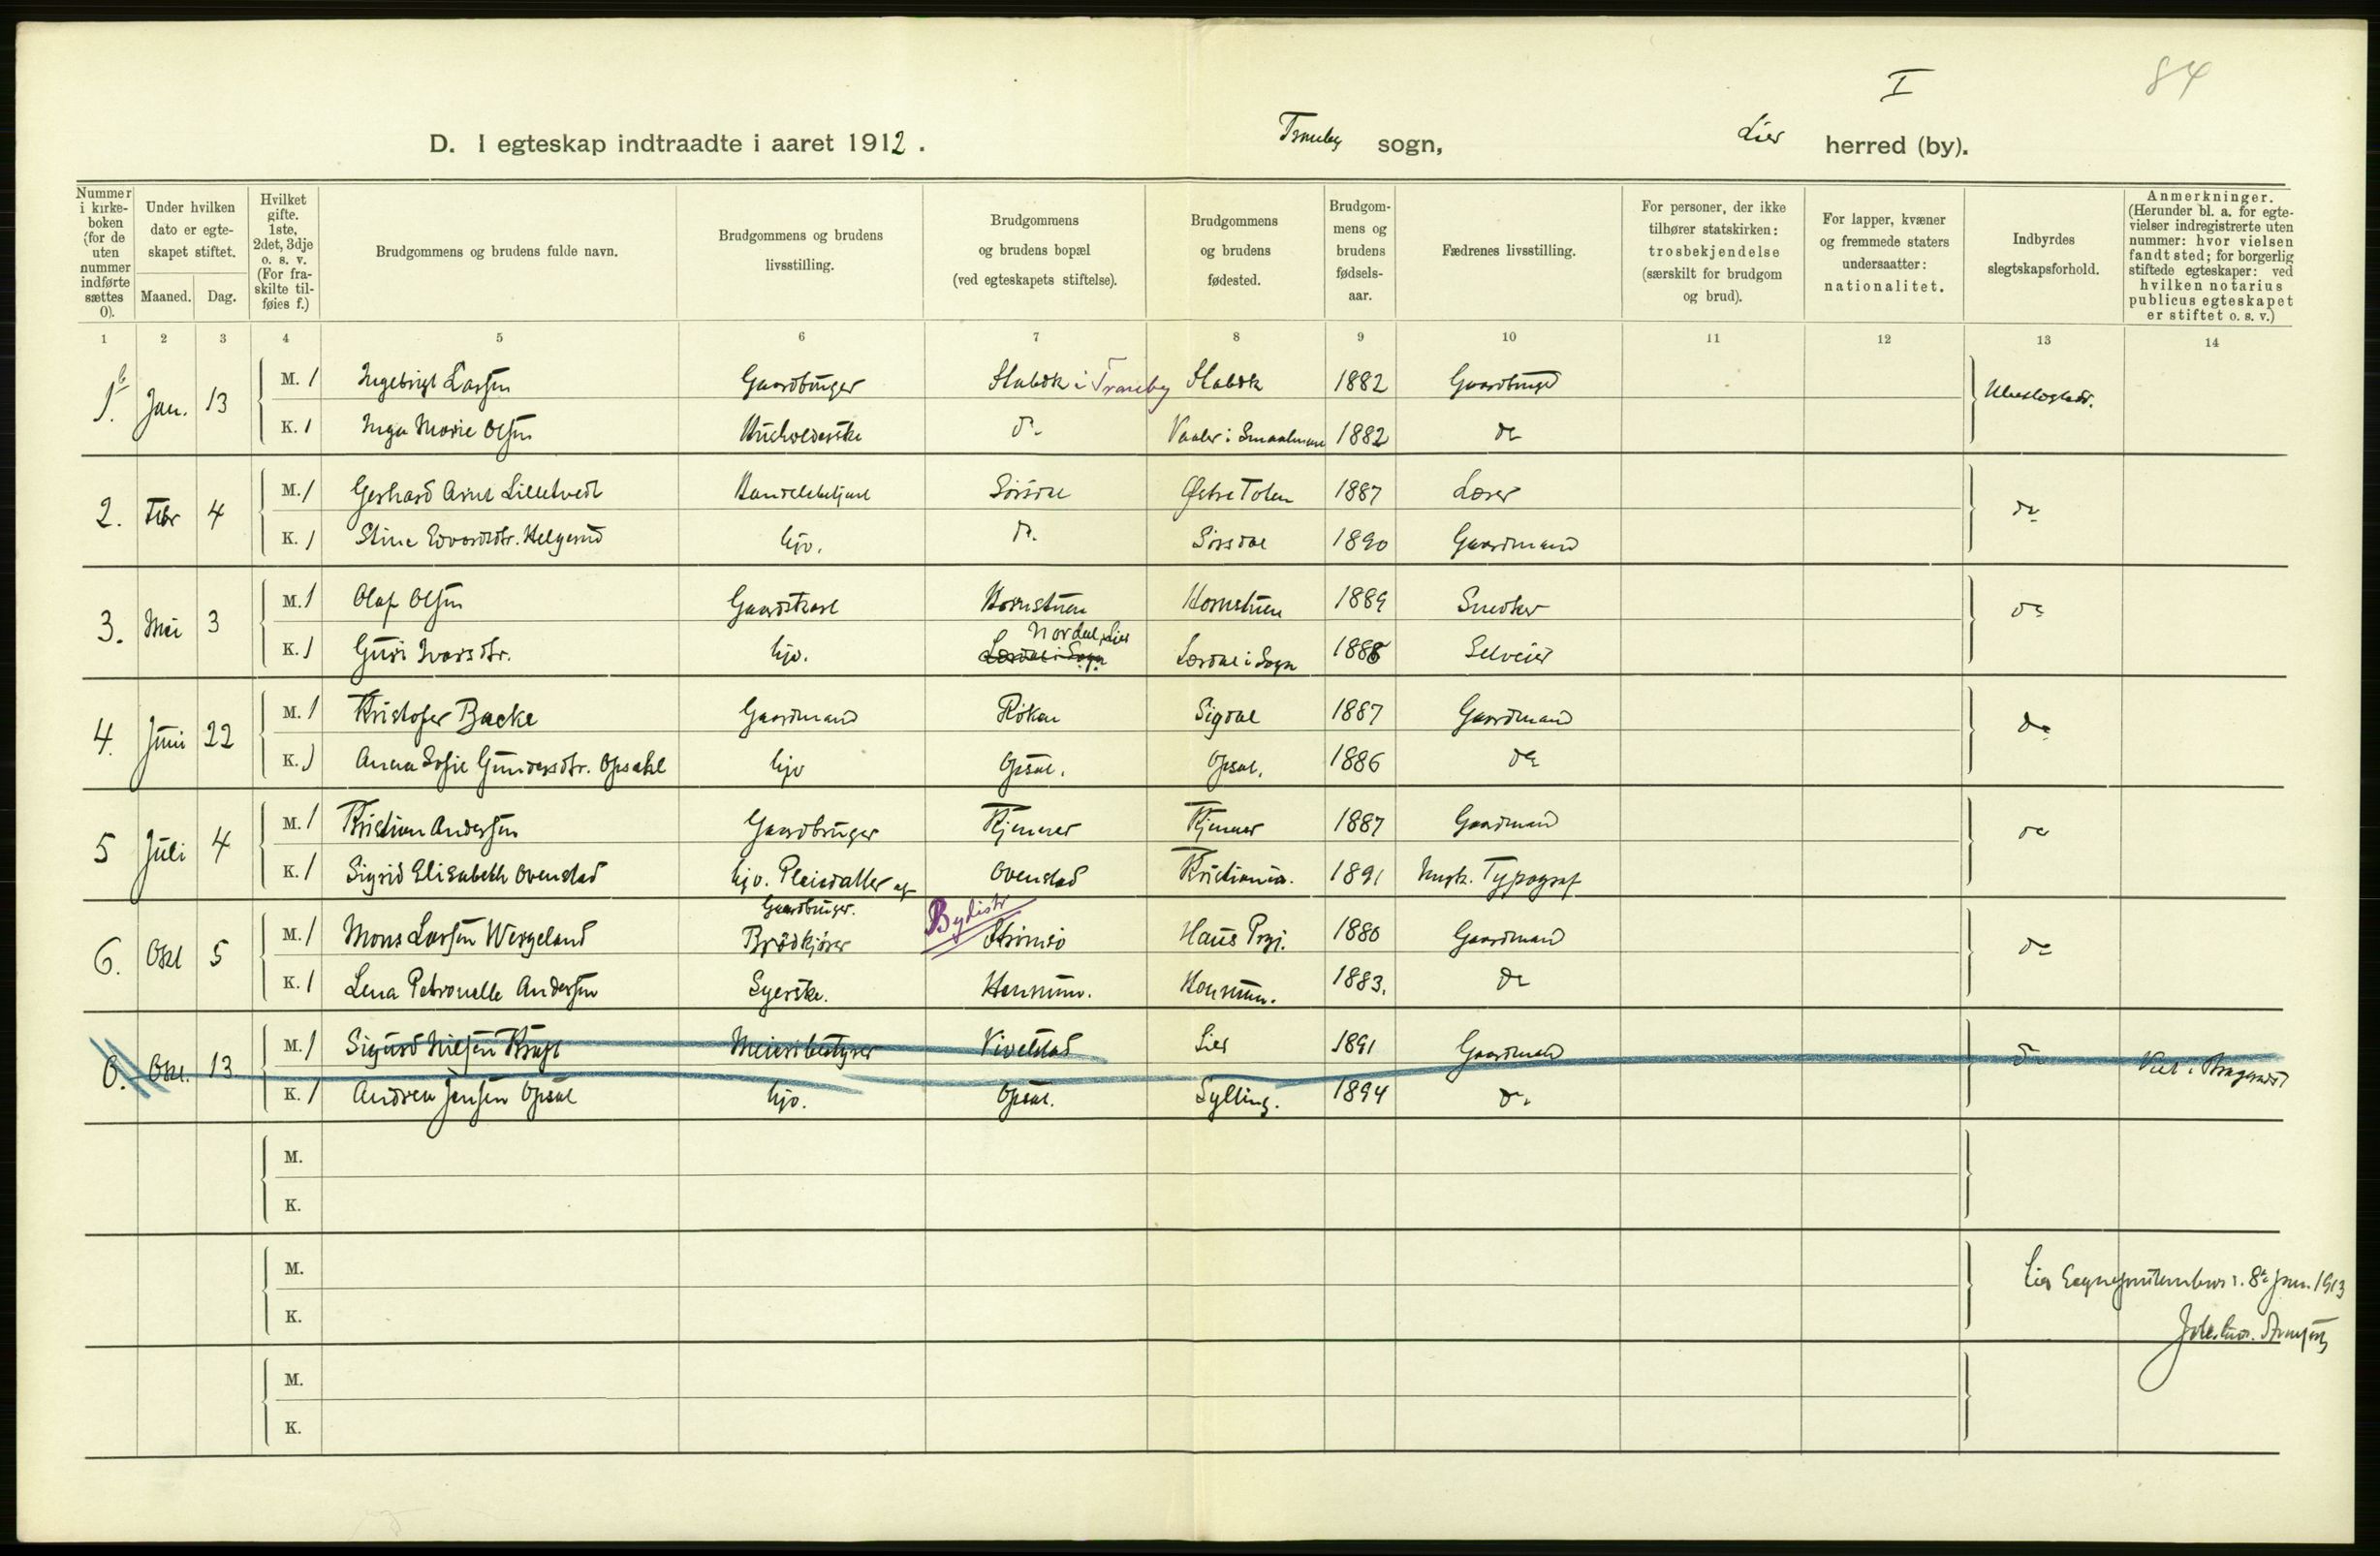 I
84
D. I egteskap indtraadte i aaret 1912.
Tranby sogn,
Lier herred (by).
Nummer i kirkeboken (for de uten nummer indførte sættes 0).
Under hvilken dato er egteskapet stiftet.
Maaned. Dag.
Hvilket gifte. 1ste, 2det, 3dje o. s. v. (For fraskilte tilføies f.)
Brudgommens og brudens fulde navn.
Brudgommens og brudens livsstilling.
Brudgommens og brudens bopæl (ved egteskapets stiftelse).
Brudgommens og brudens fødested.
Brudgommens og brudens fødselsaar.
Fædrenes livsstilling.
For personer, der ikke tilhører statskirken: trosbekjendelse (særskilt for brudgom og brud).
For lapper, kvæner og fremmede staters undersaatter: nationalitet.
Indbyrdes slegtskapsforhold.
Anmerkninger. (Herunder bl. a. for egtevielser indregistrerte uten nummer: hvor vielsen fandt sted; for borgerlig stiftede egteskaper: ved hvilken notarius publicus egteskapet er stiftet o. s. v.)
1 2 3 4 5 6 7 8 9 10 11 12 13 14
1. Jan. 13 M. 1 Ingebrigt Larsen Gaardbruger Stabæk i Tranby Stabæk 1882 Gaardbruger Ubeslegtede.
K. 1 Inga Marie Olsen Husholderske do Vaaler i Smaalenene 1882 do
2. Febr 4 M. 1 Gerhard Arne Lilletvedt Handelsbetjent Sørsdal Østre Toten 1887 Lærer do
K. 1 Stine Edvardsdtr. Helgerud hjv. do. Sørsdal 1890 Gaardmand
3. Mai 3 M. 1 Olaf Olsen Gaardskarl Hornstuen Hornstuen 1889 Snedker do
K. 1 Guri Ivarsdtr. hjv. Lærdal i Sogn Nordal, Lier Lærdal i Sogn 1888 Selveier
4. Juni 22 M. 1 Kristofer Backe Gaardmand Röken Sigdal 1887 Gaardmand do
K. 1 Anna Sofie Gundersdtr. Opsahl hjv Opsal. Opsal. 1886 do
5 Juli 4 M. 1 Kristian Andersen Gaardbruger Kjenner Kjenner 1887 Gaardmand do
K. 1 Sigrid Elisabeth Ovenstad hjv. Pleiedatter af Gaardbruger. Ovenstad Kristiania. 1891 Typograf
6. Okt 5 M. 1 Mons Larsen Wergeland Brödkjörer Bydistr Strömsö Haus Prgj. 1880 Gaardmand do
K. 1 Lena Petronelle Andersen Syerske. Hennum. Hennum. 1883. do
0. Okt. 13 M. 1 Sigurd Nilsen Meieribestyrer Vivelstad Lier 1891 Gaardmand do Viet i Bragernes
K. 1 Andrea Jensen Opsal hjv. Opsal. Sylling. 1894 do
M.
K.
M.
K.
Lier Sogneprestembede 8de Jan. 1913
M.
K.